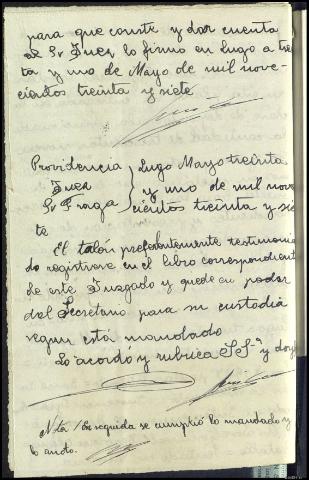 para que conste y dar cuenta
al Sr Juez lo firmo en Lugo a trein
ta y uno de Mayo de mil nove-
cientos treinta y siete
Providencia
Juez
Sr Fraga
Lugo Mayo treinta
y uno de mil nove
cientos treinta y sie
te
El talón preferentemente testimonia
do registrese en el libro correspondiente
de este Juzgado y quede en poder
del Secretario para su custodia
segun está mandado
Lo acordó y rubrica SSª y doy fe
Nota / Enseguida se cumplió lo mandado y
lo anoto.